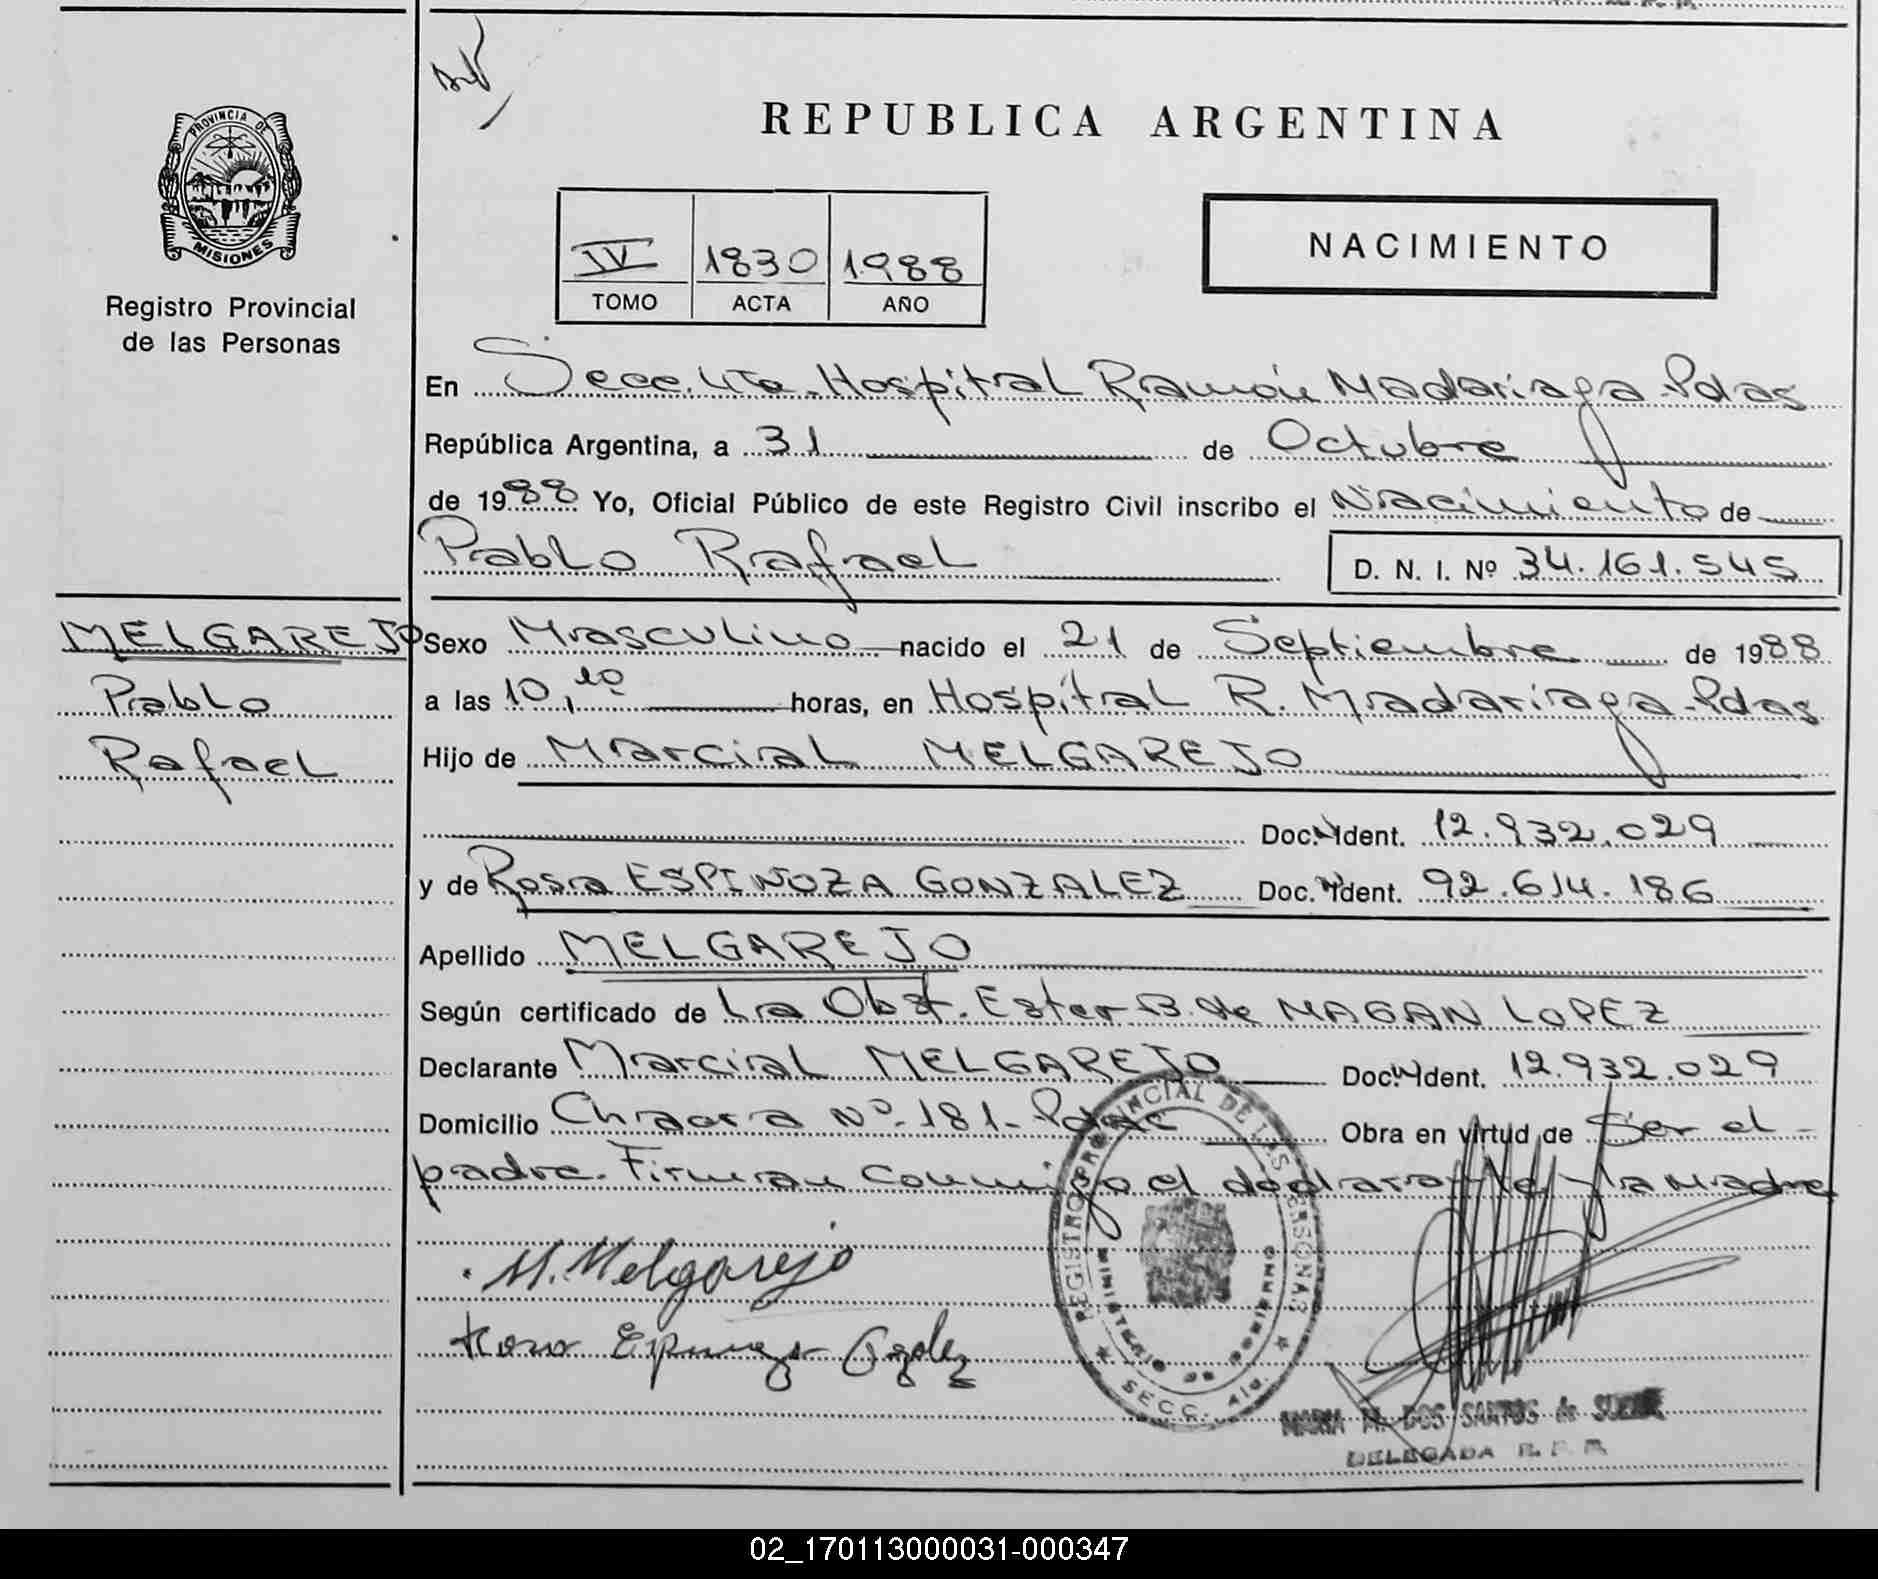 REPUBLICA ARGENTINA
PROVINCIA DE
MISIONES
Registro Provincial
de las Personas
IV 1830 1988
TOMO ACTA AÑO
NACIMIENTO
En Secc. 4ta. Hospital Ramón Madariaga-Pdas
República Argentina, a 31 de Octubre
de 1988 Yo, Oficial Público de este Registro Civil inscribo el Nacimiento de
Pablo Rafael
D. N. I. Nº 34.161.545
MELGAREJO
Pablo
Rafael
Sexo Masculino nacido el 21 de Septiembre de 1988
a las 10,10 horas, en Hospital R. Madariaga-Pdas
Hijo de Marcial MELGAREJO
Doc. Ident. 12.932.029
y de Rosa ESPINOZA GONZALEZ Doc. Ident. 92.614.186
Apellido MELGAREJO
Según certificado de La Obst. Ester B. de MAGAN LOPEZ
Declarante Marcial MELGAREJO Doc. Ident. 12.932.029
Domicilio Chacra Nº 181-Pdas Obra en virtud de Ser el
padre. Firman conmigo el declarante y la madre
M. Melgarejo
REGISTRO PROVINCIAL DE LAS PERSONAS
MINISTERIO DE GOBIERNO
SECC. 4ta.
MARIA M. DOS SANTOS de
DELEGADA R. P. P.
02_170113000031-000347